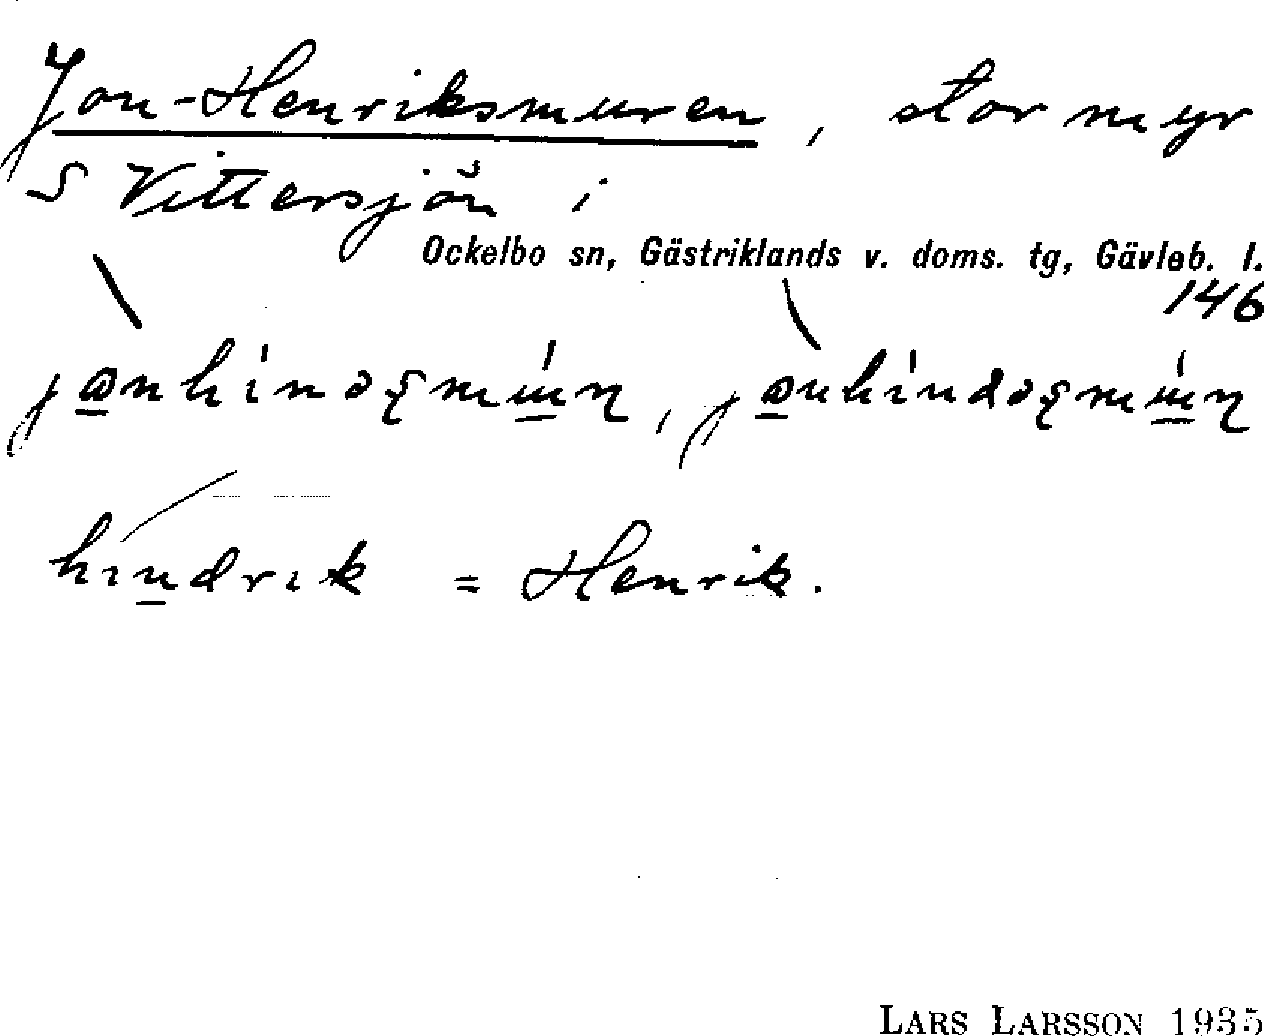 Jon-Henriksmuren, stor myr
S Vittersjön i
Ockelbo sn, Gästriklands v. doms. tg, Gävleb. l.
146
hindrik = Henrik.
LARS LARSSON 1935